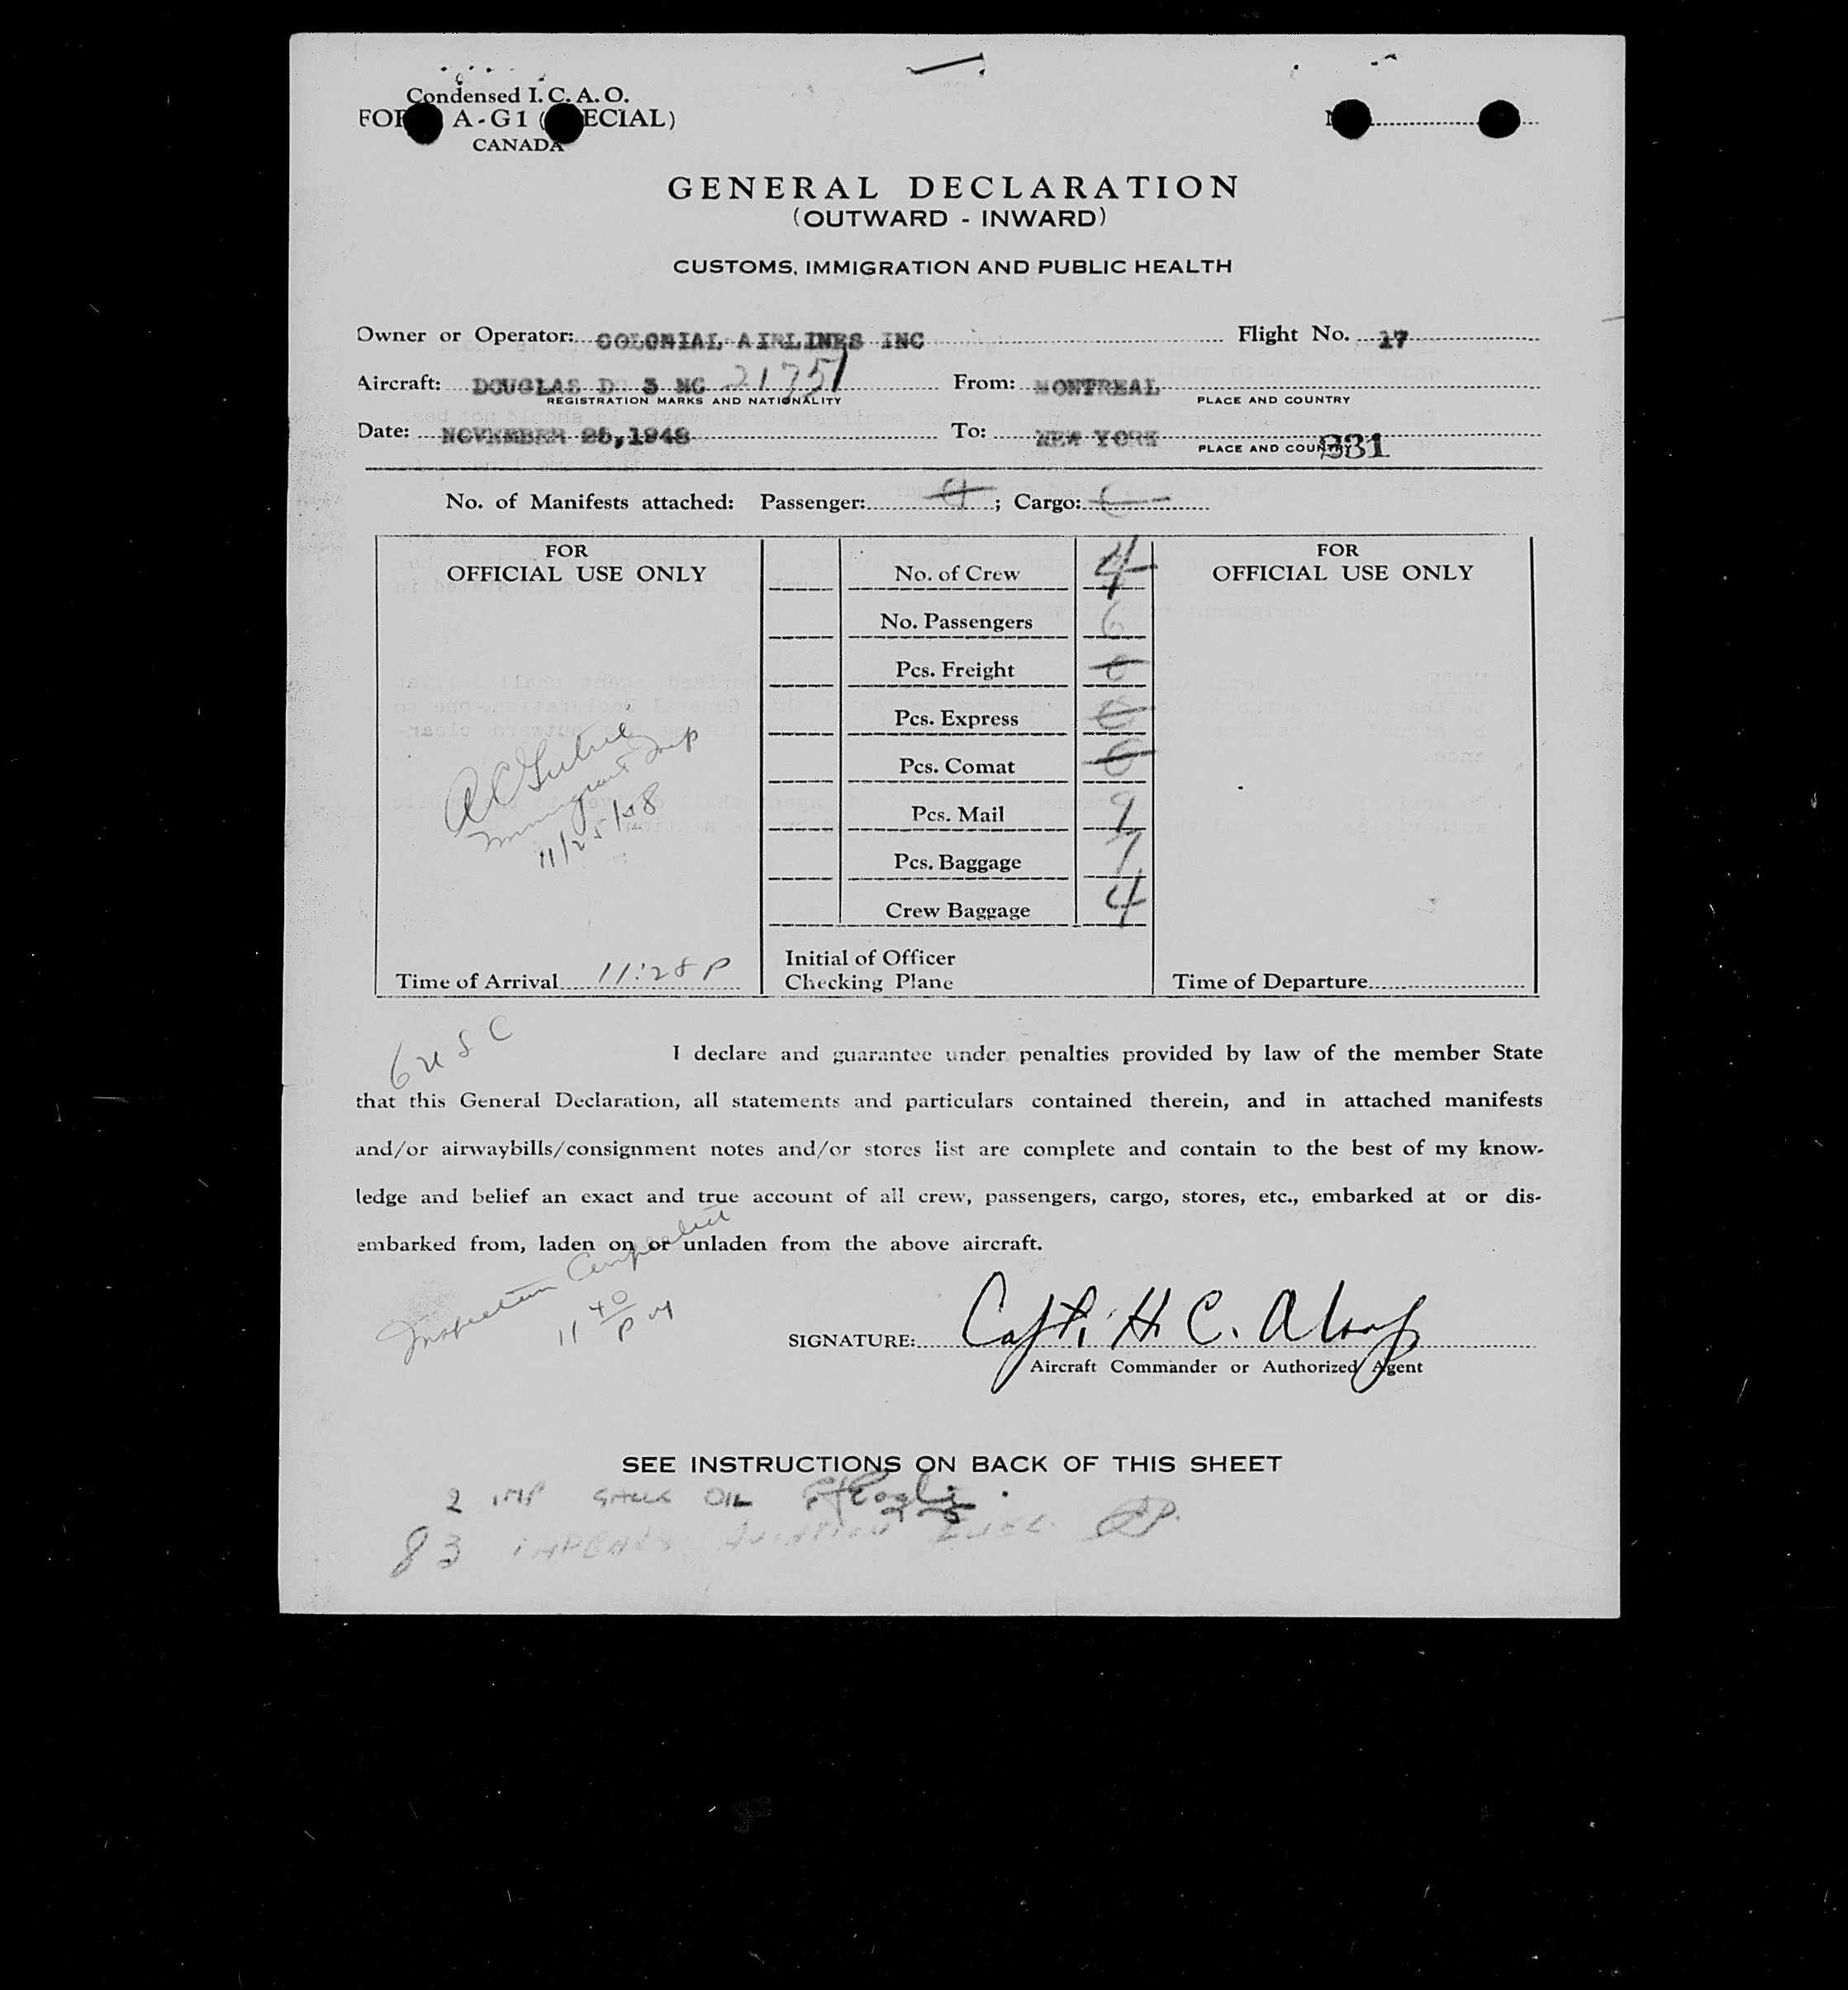 Condensed I.C.A.O.
A-G1 ECIAL)
CANADA
GENERAL DECLARATION
(OUTWARD - INWARD)
CUSTOMS, IMMIGRATION AND PUBLIC HEALTH
Owner or Operator: COLONIAL AIRLINES INC Flight No. 17
Aircraft: DOUGLAS D 3 NC 21751 From: MONTREAL
REGISTRATION MARKS AND NATIONALITY PLACE AND COUNTRY
Date: NOVEMBER 25,1948 To: NEW YORK
PLACE AND COUNTRY 331
No. of Manifests attached: Passenger: ; Cargo:
FOR
OFFICIAL USE ONLY
No. of Crew 4
No. Passengers 6
Pcs. Freight 0
Pcs. Express 0
Pcs. Comat 0
Pcs. Mail 9
Pcs. Baggage 7
Crew Baggage 4
Immigrant Insp
11/25/48
Time of Arrival 11:28 P
Initial of Officer
Checking Plane
FOR
OFFICIAL USE ONLY
Time of Departure
6 USC
I declare and guarantee under penalties provided by law of the member State
that this General Declaration, all statements and particulars contained therein, and in attached manifests
and/or airwaybills/consignment notes and/or stores list are complete and contain to the best of my know-
ledge and belief an exact and true account of all crew, passengers, cargo, stores, etc., embarked at or dis-
embarked from, laden on or unladen from the above aircraft.
Inspection Completed
11 40 PM
SIGNATURE: Capt. H. C. Alsop
Aircraft Commander or Authorized Agent
SEE INSTRUCTIONS ON BACK OF THIS SHEET
2 IMP OIL
83 IMPERIALS AVIATION FUEL